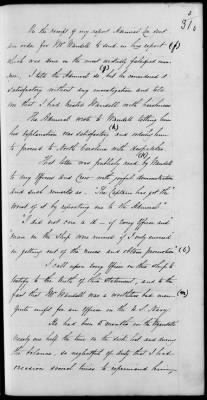 31/6
On the receipt of my report Admiral Lee sent
an order for Mr Wandell to send in his report (f)
which was done in the most widely fabricated man-
ner. I told the Admiral so, but he considered it
satisfactory without any investigation and told
me that I had treated Wandell with harshness
The Admiral wrote to Wandell telling him
his explanation was satisfactory (h) and ordered him
to proceed to North Carolina with despatches
This letter (k) was publicly read by Wandell
to my officers and Crew with joyful demonstration
and such remarks as. "The Captain has got the
worst of it by reporting me to the Admiral"
"I did not care a d—n if every officer and
man on the Ship was ruined if I only succeed
in getting out of the scrape and obtain promotion" (l)
I call upon every officer on this Ship to
testify to the truth of this Statement, and to the
fact that Mr Wandell was a worthless bad man—
Quite unfit for an Officer in the U. S. Navy.
He had been 5 months on the
nearly one half the time on the sick list and during
the balance, so neglectful of duty that I had
occasion several times to reprimand him,
(m)